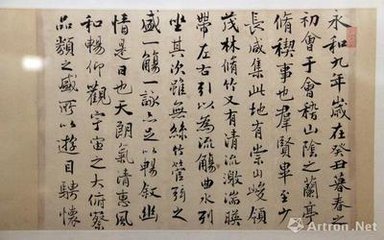 永和九年歲在癸丑暮春之
初會于會稽山陰之蘭亭
脩禊事也羣賢畢至少
長咸集此地有崇山峻領
茂林脩竹又有清流激湍暎
帶左右引以為流觴曲水列
坐其次雖無絲竹管弦之
盛一觴一詠亦足以暢叙幽
情是日也天朗氣清惠風
和暢仰觀宇宙之大俯察
品類之盛所以遊目騁懷
Artron.Net